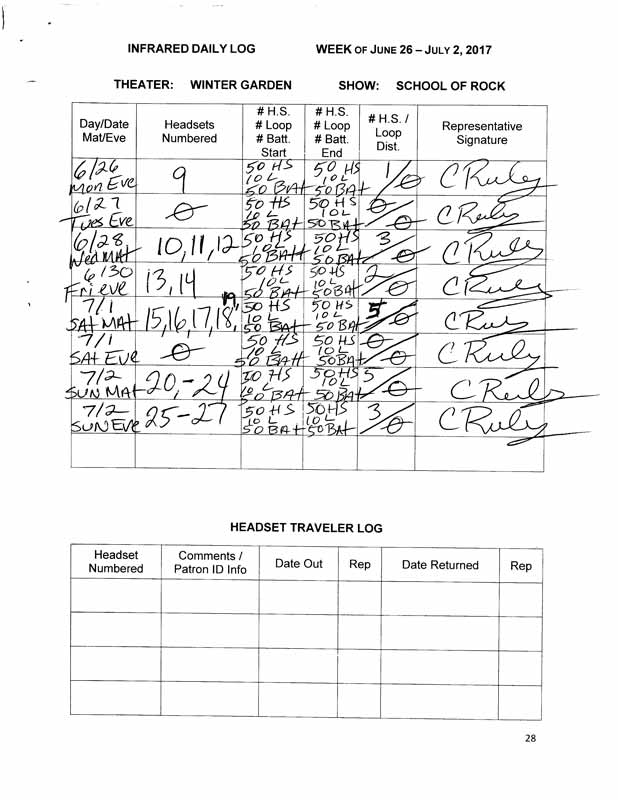 INFRARED DAILY LOG WEEK OF JUNE 26 – JULY 2, 2017
THEATER: WINTER GARDEN SHOW: SCHOOL OF ROCK
Day/Date
Mat/Eve
Headsets
Numbered
# H.S.
# Loop
# Batt.
Start
# H.S.
# Loop
# Batt.
End
# H.S. /
Loop
Dist.
Representative
Signature
6/26
Mon Eve
9
50 HS
10 L
50 BAt
50 HS
10 L
50 BAt
1/0
C Ruly
6/27
Tues Eve
0
50 HS
10 L
50 BAt
50 HS
10 L
50 BAt
0/0
C Ruly
6/28
Wed MAt
10, 11, 12
50 HS
10 L
50 BAtt
50 HS
10 L
50 BAt
3/0
C Ruly
6/30
Fri eve
13, 14
50 HS
10 L
50 BAt
50 HS
10 L
50 BAt
2/0
C Ruly
7/1
SAt MAt
15, 16, 17, 18, 19
50 HS
10 L
50 BAt
50 HS
10 L
50 BAt
5/0
C Ruly
7/1
SAt Eve
0
50 HS
10 L
50 BAtt
50 HS
10 L
50 BAt
0/0
C Ruly
7/2
SUN MAt
20, - 24
50 HS
10 L
50 BAt
50 HS
10 L
50 BAt
5/0
C Ruly
7/2
SUN Eve
25 - 27
50 HS
10 L
50 BAt
50 HS
10 L
50 BAt
3/0
C Ruly
HEADSET TRAVELER LOG
Headset
Numbered
Comments /
Patron ID Info
Date Out
Rep
Date Returned
Rep
28